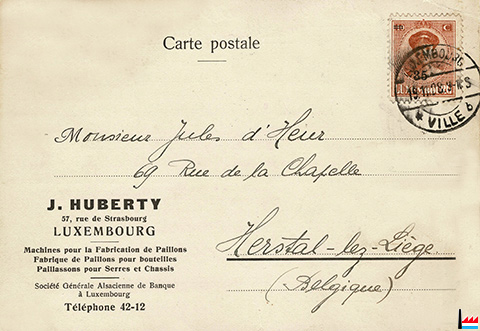 Carte postale
LUXEMBOURG
VILLE
Monsieur Jules d'Heur
69 Rue de la Chapelle
J. HUBERTY
57, rue de Strasbourg
LUXEMBOURG
Machines pour la Fabrication de Paillons
Fabrique de Paillons pour bouteilles
Paillassons pour Serres et Chassis
Société Générale Alsacienne de Banque
à Luxembourg
Téléphone 42-12
Herstal-lez-Liège
(Belgique)